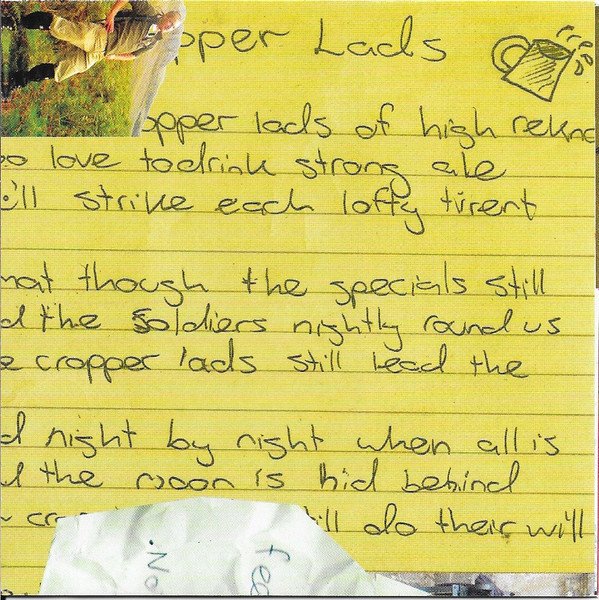 pper Lads
opper lads of high rekno
oo love to drink strong ale
e'll strike each lofty tirent
hat though the specials still
d the Soldiers nightly round us
e cropper lads still lead the
d night by night when all is
d the moon is hid behind
cro ill do their will
fee
.No